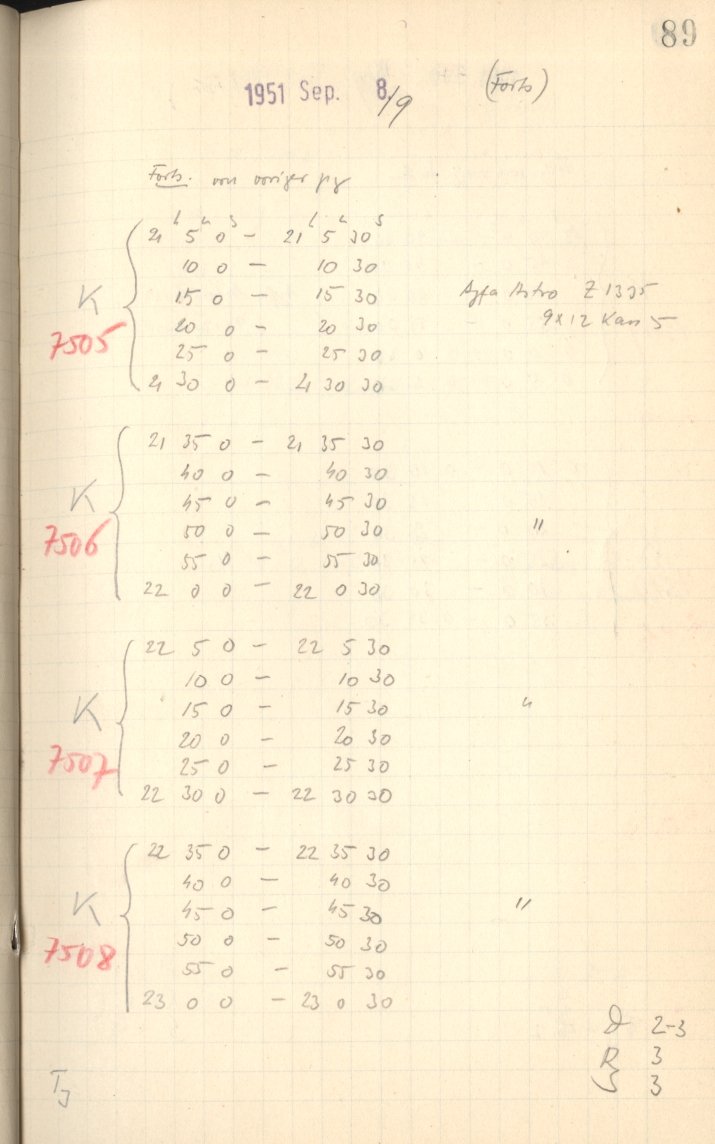 89
1951 Sep. 8/9 (Forts)
Forts. von voriger
21 h 5 m 0 s - 21 h 5 m 30 s
10 0 - 10 30
K 15 0 - 15 30 Agfa Astro Z 1335
7505 20 0 - 20 30 9x12 Kass 5
25 0 - 25 30
21 30 0 - 21 30 30
21 35 0 - 21 35 30
40 0 - 40 30
K 45 0 - 45 30
7506 50 0 - 50 30 "
55 0 - 55 30
22 0 0 - 22 0 30
22 5 0 - 22 5 30
10 0 - 10 30
K 15 0 - 15 30 "
7507 20 0 - 20 30
25 0 - 25 30
22 30 0 - 22 30 30
22 35 0 - 22 35 30
40 0 - 40 30
K 45 0 - 45 30 "
7508 50 0 - 50 30
55 0 - 55 30
23 0 0 - 23 0 30
D 2-3
R 3
S 3